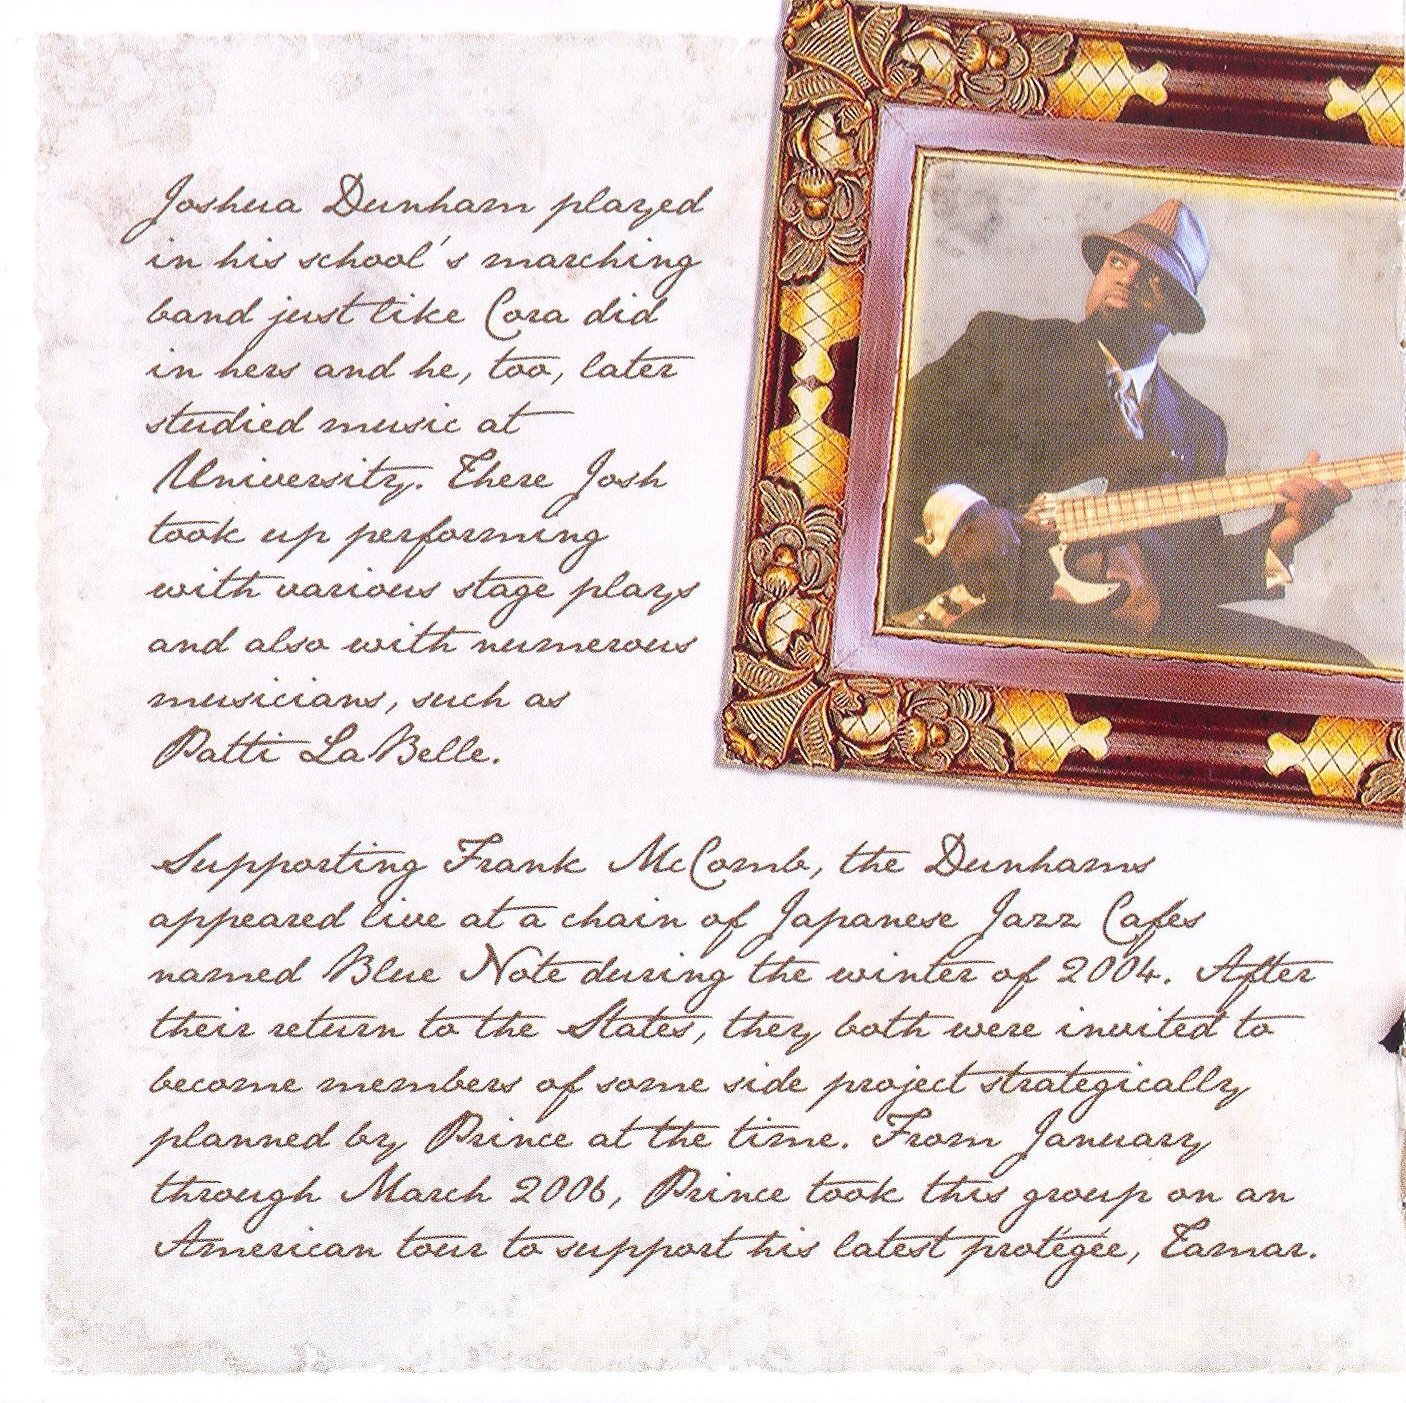 Joshua Dunham played
in his school's marching
band just like Cora did
in hers and he, too, later
studied music at
University. There Josh
took up performing
with various stage plays
and also with numerous
musicians, such as
Patti LaBelle.
Supporting Frank McComb, the Dunhams
appeared live at a chain of Japanese Jazz Cafes
named Blue Note during the winter of 2004. After
their return to the States, they both were invited to
become members of some side project strategically
planned by Prince at the time. From January
through March 2006, Prince took this group on an
American tour to support his latest protégée, Tamar.